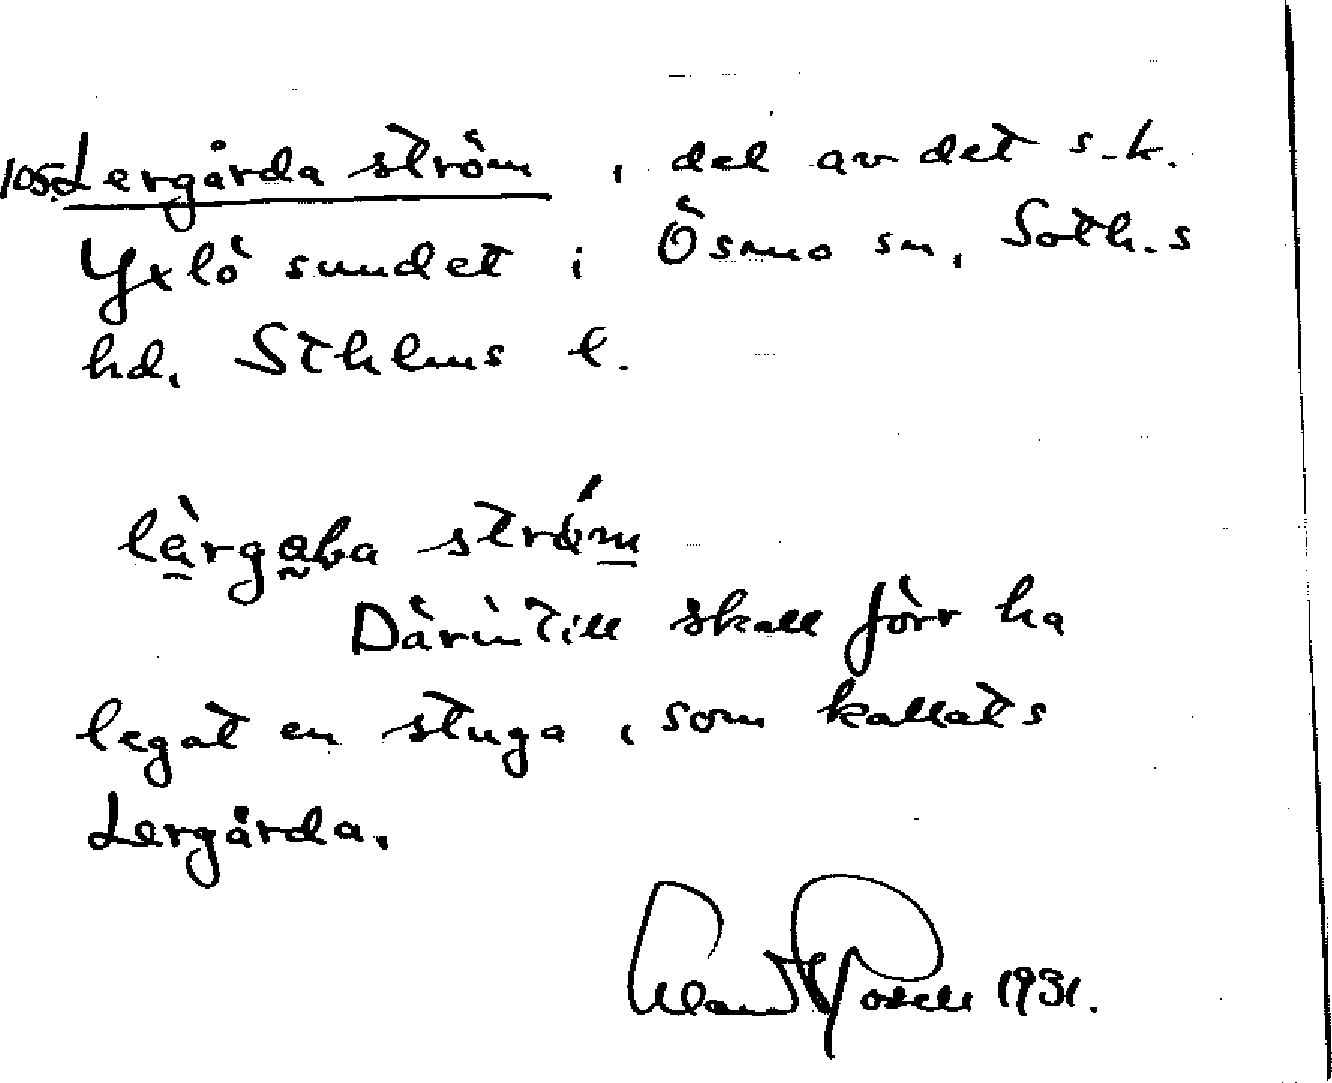 105. Lergårda ström, del av det s.k.
Yxlö sundet i Ösmo sn, Soth.s
hd, Sthlms l.
ström
Därintill skall förr ha
legat en stuga, som kallats
Lergårda.
1931.